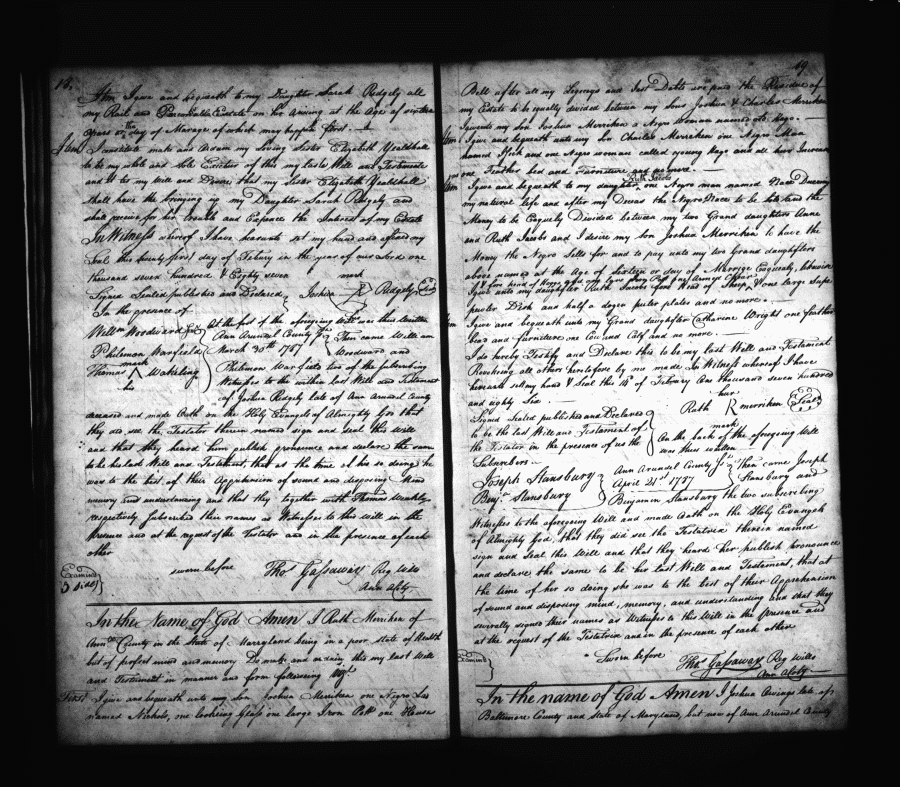 18.
Item I give and bequeath to my Daughter Sarah Ridgely all
my Real and Personalble Estate on her ariving at the Age of sixteen
years or the day of Marage of which may happen first.
Item I constitute make and ordain my Loving Sister Elizabeth Yealdhall
to be my whole and sole Exetor of this my Last Will and Testiment
and It tis my Will and Desire that my Sister Elizabeth Yealdhall
shall have the bringing up my Daughter Sarah Ridgely and
shall receive for her trouble and Expence the Interest of my Estate
In Witness whereof I have hearunto set my hand and affixed my
Seal this twenty first day of Febury in the year of our Lord one
thousand seven hundred & Eighty seven
mark
Signed Sealed published and Declared Joshua Ridgely Seal
In the presence of
Willm Woodward At the foot of the foregoing Will was thus written
Ann Arundel County Sc Then came Willm
Philemon Warfield March 30th 1787 Woodward and
mark
Thomas Wakeling Philemon Warfield two of the subscribing
Witnesses to the within last Will and Testament
of Joshua Ridgely late of Ann Arundel County
deceased and made Oath on the Holy Evangels of Almighty God that
they did see the Testator therein named sign and seal this Will
and that they heard him publish pronounce and declare the same
to be his last Will and Testament, that at the time of his so doing he
was to the best of their Apprehension of sound and disposing Mind
memory and understanding and that they together with Thomas
respectively subscribed their names as Witnesses to this will in the
presence and at the request of the Testator and in the presence of each
other
sworn before Thos Gassaway Reg Wills
Ann Al Cty
Examined
3 sides
In the Name of God Amen I Ruth Merriken of
Ann County in the State of Marryland being in a poor state of Health
but of perfect mind and memory Do make and ordain this my last Will
and Testament in manner and form following
First I give and bequeath unto my son Joshua Merriken one Negro Lad
named Nicholas, one looking Glass one large Iron Pott one House
19
Bell after all my Legesys and Just Debts are paid the Residue of
my Estate to be equilly divided between my sons Joshua & Charles Merriken
I give unto my Son Joshua Merriken a Negro Woman named old Hago.
Item I give and bequeath unto my son Charles Merriken one Negro Man
named and one Negro woman called young Hago and all her Increase
one Feather bed and Furniture and no more
Ruth Jacobs
Item I give and bequeath to my daughter one Negro man named Nace During
my natural life and after my Deceas the Negro Nace to be sold and the
Money to be Equeily Divided between my two Grand daughters Anne
and Ruth Jacobs and I desire my Son Joshua Merriken to have the
Money the Negro Sells for and to pay unto my two Grand daughters
above named at the Age of Sixteen or day of Marrige Equeally, likewise
I give unto my daughter Ruth Jacobs four Head of Sheep, & one large
pewter Dish and half a dozen puter plates and no more
I give and bequeath unto my Grand daughter Catharine Wright one feather
bead and furniture one Cow and Calf and no more
I do hereby Testify and Declare this to be my last Will and Testament
Revoking all others heretofore by me made In Witness whereof I have
hereunto set my hand & Seal this 14th of Febuary One thousand seven hundred
and eighty Six
her
Signed Sealed published and Declared Ruth R merriken Seal
to be the last Will and Testament of mark
the Testator in the presence of us the On the back of the foregoing Will
Subscribers was thus written
Joseph Stansbury Ann Arundel County Sc Then came Joseph
Benjn Stansbury April 21st 1787 Stansbury and
Benjamin Stansbury the two subscribing
Witnesses to the aforegoing Will and made Oath on the Holy Evangels
of Almighty God, that they did see the Testatrix therein named
sign and seal this Will and that they heard her publish pronounce
and declare the same to be her last Will and Testament, that at
the time of her so doing she was to the best of their Apprehension
of sound and disposing mind, memory, and understanding and that they
severally signed their names as Witnesses to this Will in the presence and
at the request of the Testatrix and in the presence of each other
Sworn before Thos Gassaway Reg Wills
Ann Al Cty
Examined
In the name of God Amen I Joshua Owings late of
Baltimore County and State of Maryland, but now of Ann Arundel County